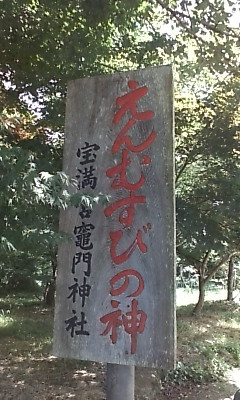 えんむすびの神
宝満宮竈門神社